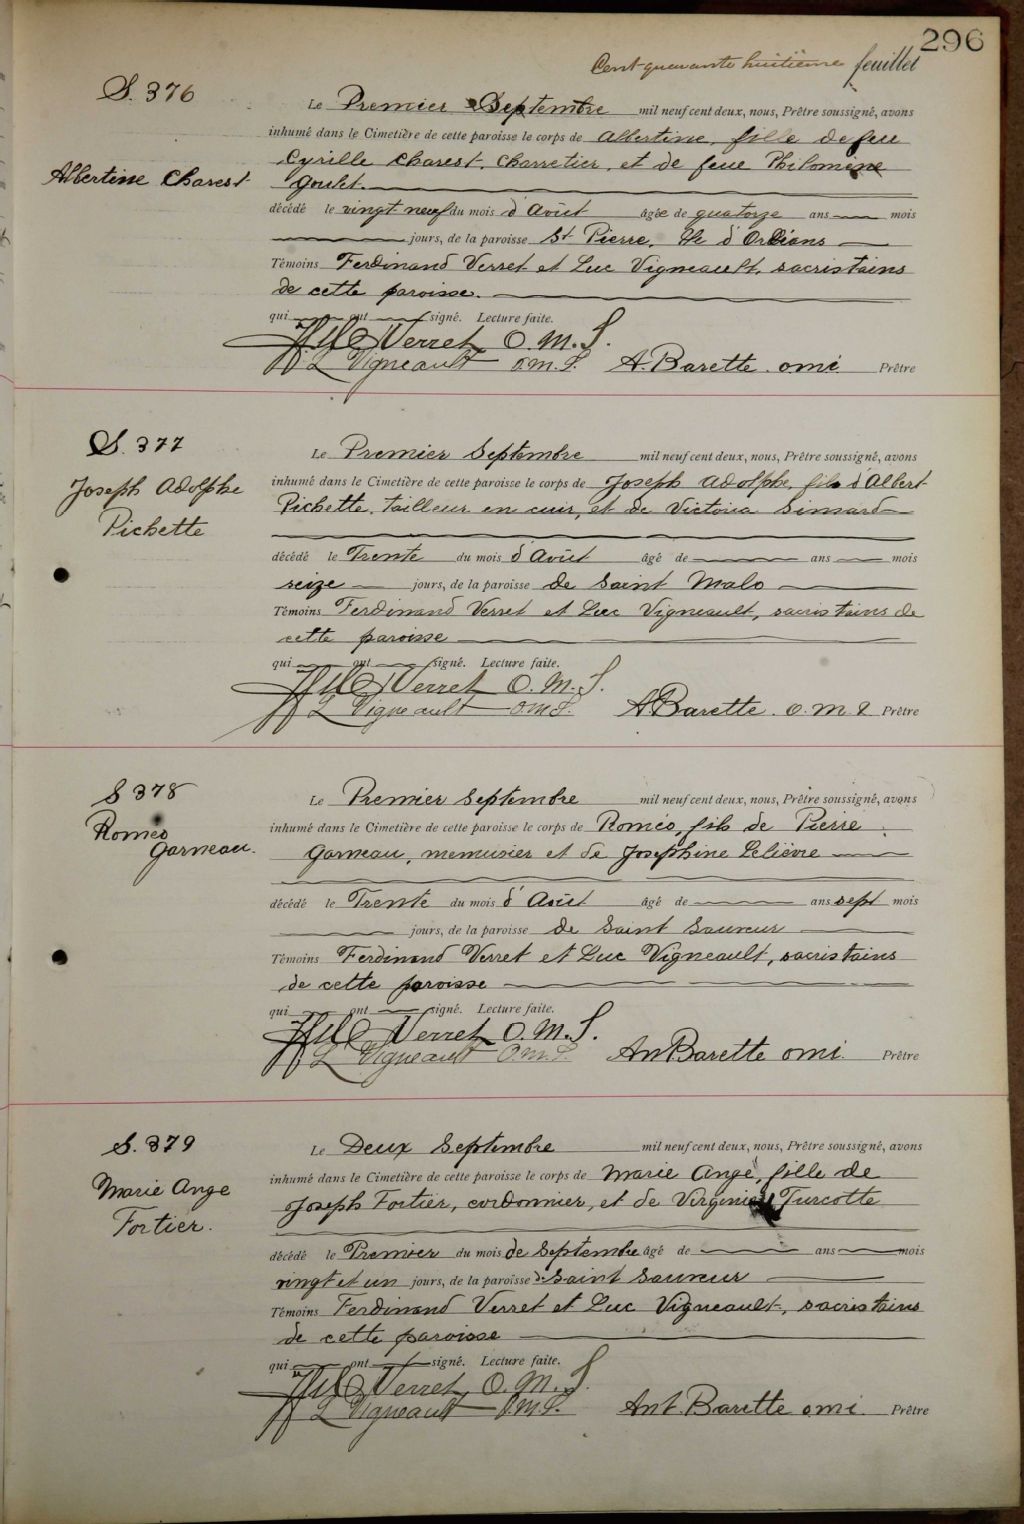 296
Cent-quarante huitième feuillet
S. 376
Le Premier Septembre mil neuf cent deux, nous, Prêtre soussigné, avons
inhumé dans le Cimetière de cette paroisse le corps de Albertine, fille de feu
Cyrille Charest, charretier, et de feue Philomène
Albertine Charest
Goulet.
décédé le vingt neuf du mois d'Août âgée de quatorze ans mois
jours, de la paroisse St Pierre, Ile d'Orléans
Témoins Ferdinand Verret et Luc Vigneault, sacristains
de cette paroisse.
qui ont signé. Lecture faite.
Verret O.M.S.
L Vigneault O.M.S. A. Barette omi Prêtre
S. 377
Joseph Adolphe
Pichette
Le Premier Septembre mil neuf cent deux, nous, Prêtre soussigné, avons
inhumé dans le Cimetière de cette paroisse le corps de Joseph Adolphe, fils d'Albert
Pichette, tailleur en cuir, et de Victoria Simard
décédé le Trente du mois d'Août âgé de ans mois
seize jours, de la paroisse de Saint Malo
Témoins Ferdinand Verret et Luc Vigneault, sacristains de
cette paroisse
qui ont signé. Lecture faite.
Verret O.M.S.
L Vigneault O.M.S. A. Barette. o.m.i Prêtre
S 378
Roméo
Garneau.
Le Premier Septembre mil neuf cent deux, nous, Prêtre soussigné, avons
inhumé dans le Cimetière de cette paroisse le corps de Roméo, fils de Pierre
Garneau, menuisier et de Joséphine Lelièvre
décédé le Trente du mois d'Août âgé de ans sept mois
jours, de la paroisse de Saint Sauveur
Témoins Ferdinand Verret et Luc Vigneault, sacristains
de cette paroisse
qui ont signé. Lecture faite.
Verret O.M.S.
L Vigneault O.M.S. Ant Barette omi. Prêtre
S. 379
Marie Ange
Fortier.
Le Deux Septembre mil neuf cent deux, nous, Prêtre soussigné, avons
inhumé dans le Cimetière de cette paroisse le corps de Marie Ange, fille de
Joseph Fortier, cordonnier, et de Virginie Turcotte
décédé le Premier du mois de Septembre âgé de ans mois
vingt et un jours, de la paroisse de Saint Sauveur
Témoins Ferdinand Verret et Luc Vigneault, sacristains
de cette paroisse
qui ont signé. Lecture faite.
Verret O.M.S.
L Vigneault O.M.S. Ant. Barette omi. Prêtre